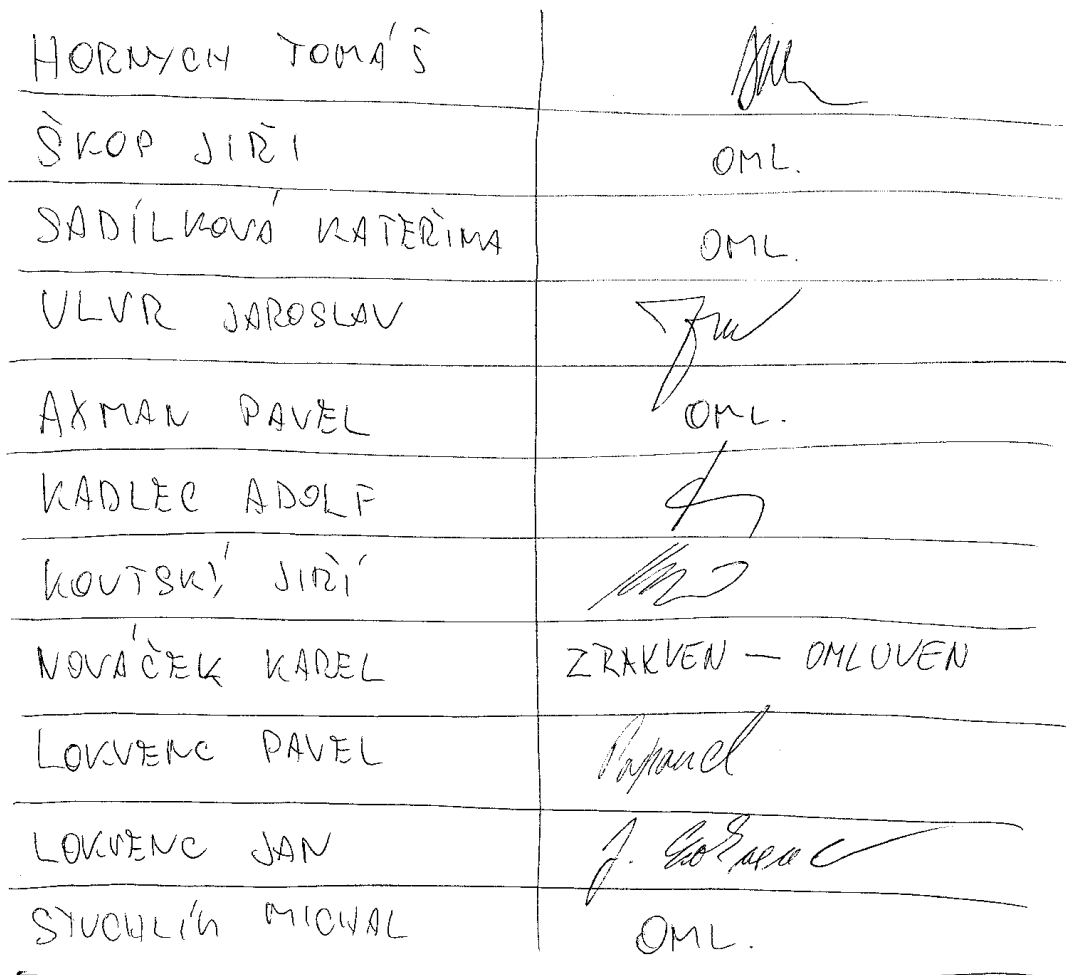 HORNYCH TOMÁŠ
ŠKOP JIŘÍ OML.
SADÍLKOVÁ KATEŘINA OML.
ULVR JAROSLAV
AXMAN PAVEL OML.
KADLEC ADOLF
KOUTSKÝ JIŘÍ
NOVÁČEK KAREL ZRAKVEN — OMLUVEN
LOKVENC PAVEL
LOKVENC JAN J. Lokvenc
STUCHLÍK MICHAL OML.